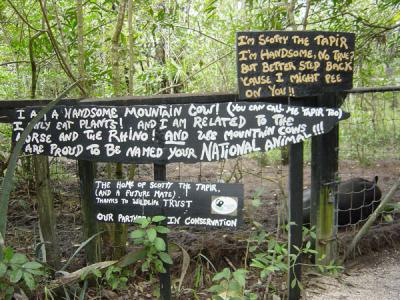 I'm Scotty the Tapir
I'm Handsome, No True?
But Better Step Back
'Cause I Might Pee
on You!!
I am a Handsome Mountain Cow! (You can call me Tapir too)
I only eat plants! And I am related to the
Horse and the Rhino! And we Mountain Cows
are proud to be named your National Animal!!!
The Home of Scotty the Tapir,
(and a future mate)!
Thanks to Wildlife Trust
Our Partners in Conservation